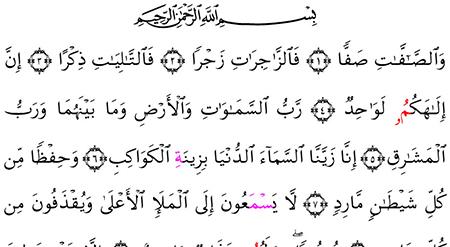 بِسْمِ اللَّهِ الرَّحْمَٰنِ الرَّحِيمِ
وَالصَّٰٓفَّٰتِ صَفًّا ﴿١﴾ فَالزَّٰجِرَٰتِ زَجْرًا ﴿٢﴾ فَالتَّٰلِيَٰتِ ذِكْرًا ﴿٣﴾ إِنَّ
إِلَٰهَكُمُۥ لَوَٰحِدٌ ﴿٤﴾ رَّبُّ السَّمَٰوَٰتِ وَالْأَرْضِ وَمَا بَيْنَهُمَا وَرَبُّ
الْمَشَٰرِقِ ﴿٥﴾ إِنَّا زَيَّنَّا السَّمَآءَ الدُّنْيَا بِزِينَةِ الْكَوَاكِبِ ﴿٦﴾ وَحِفْظًا مِّن
كُلِّ شَيْطَٰنٍ مَّارِدٍ ﴿٧﴾ لَّا يَسْمَعُونَ إِلَى الْمَلَإِ الْأَعْلَىٰ وَيُقْذَفُونَ مِن